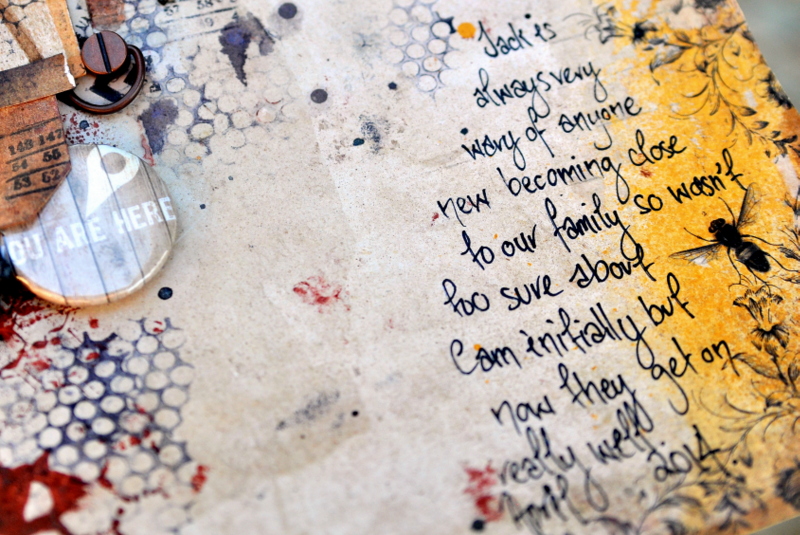 148 147
54 55
53 62
OU ARE HERE
Jack is
always very
wary of anyone
new becoming close
to our family so wasn't
too sure about
Cam initially but
now they get on
really well
April 2014.